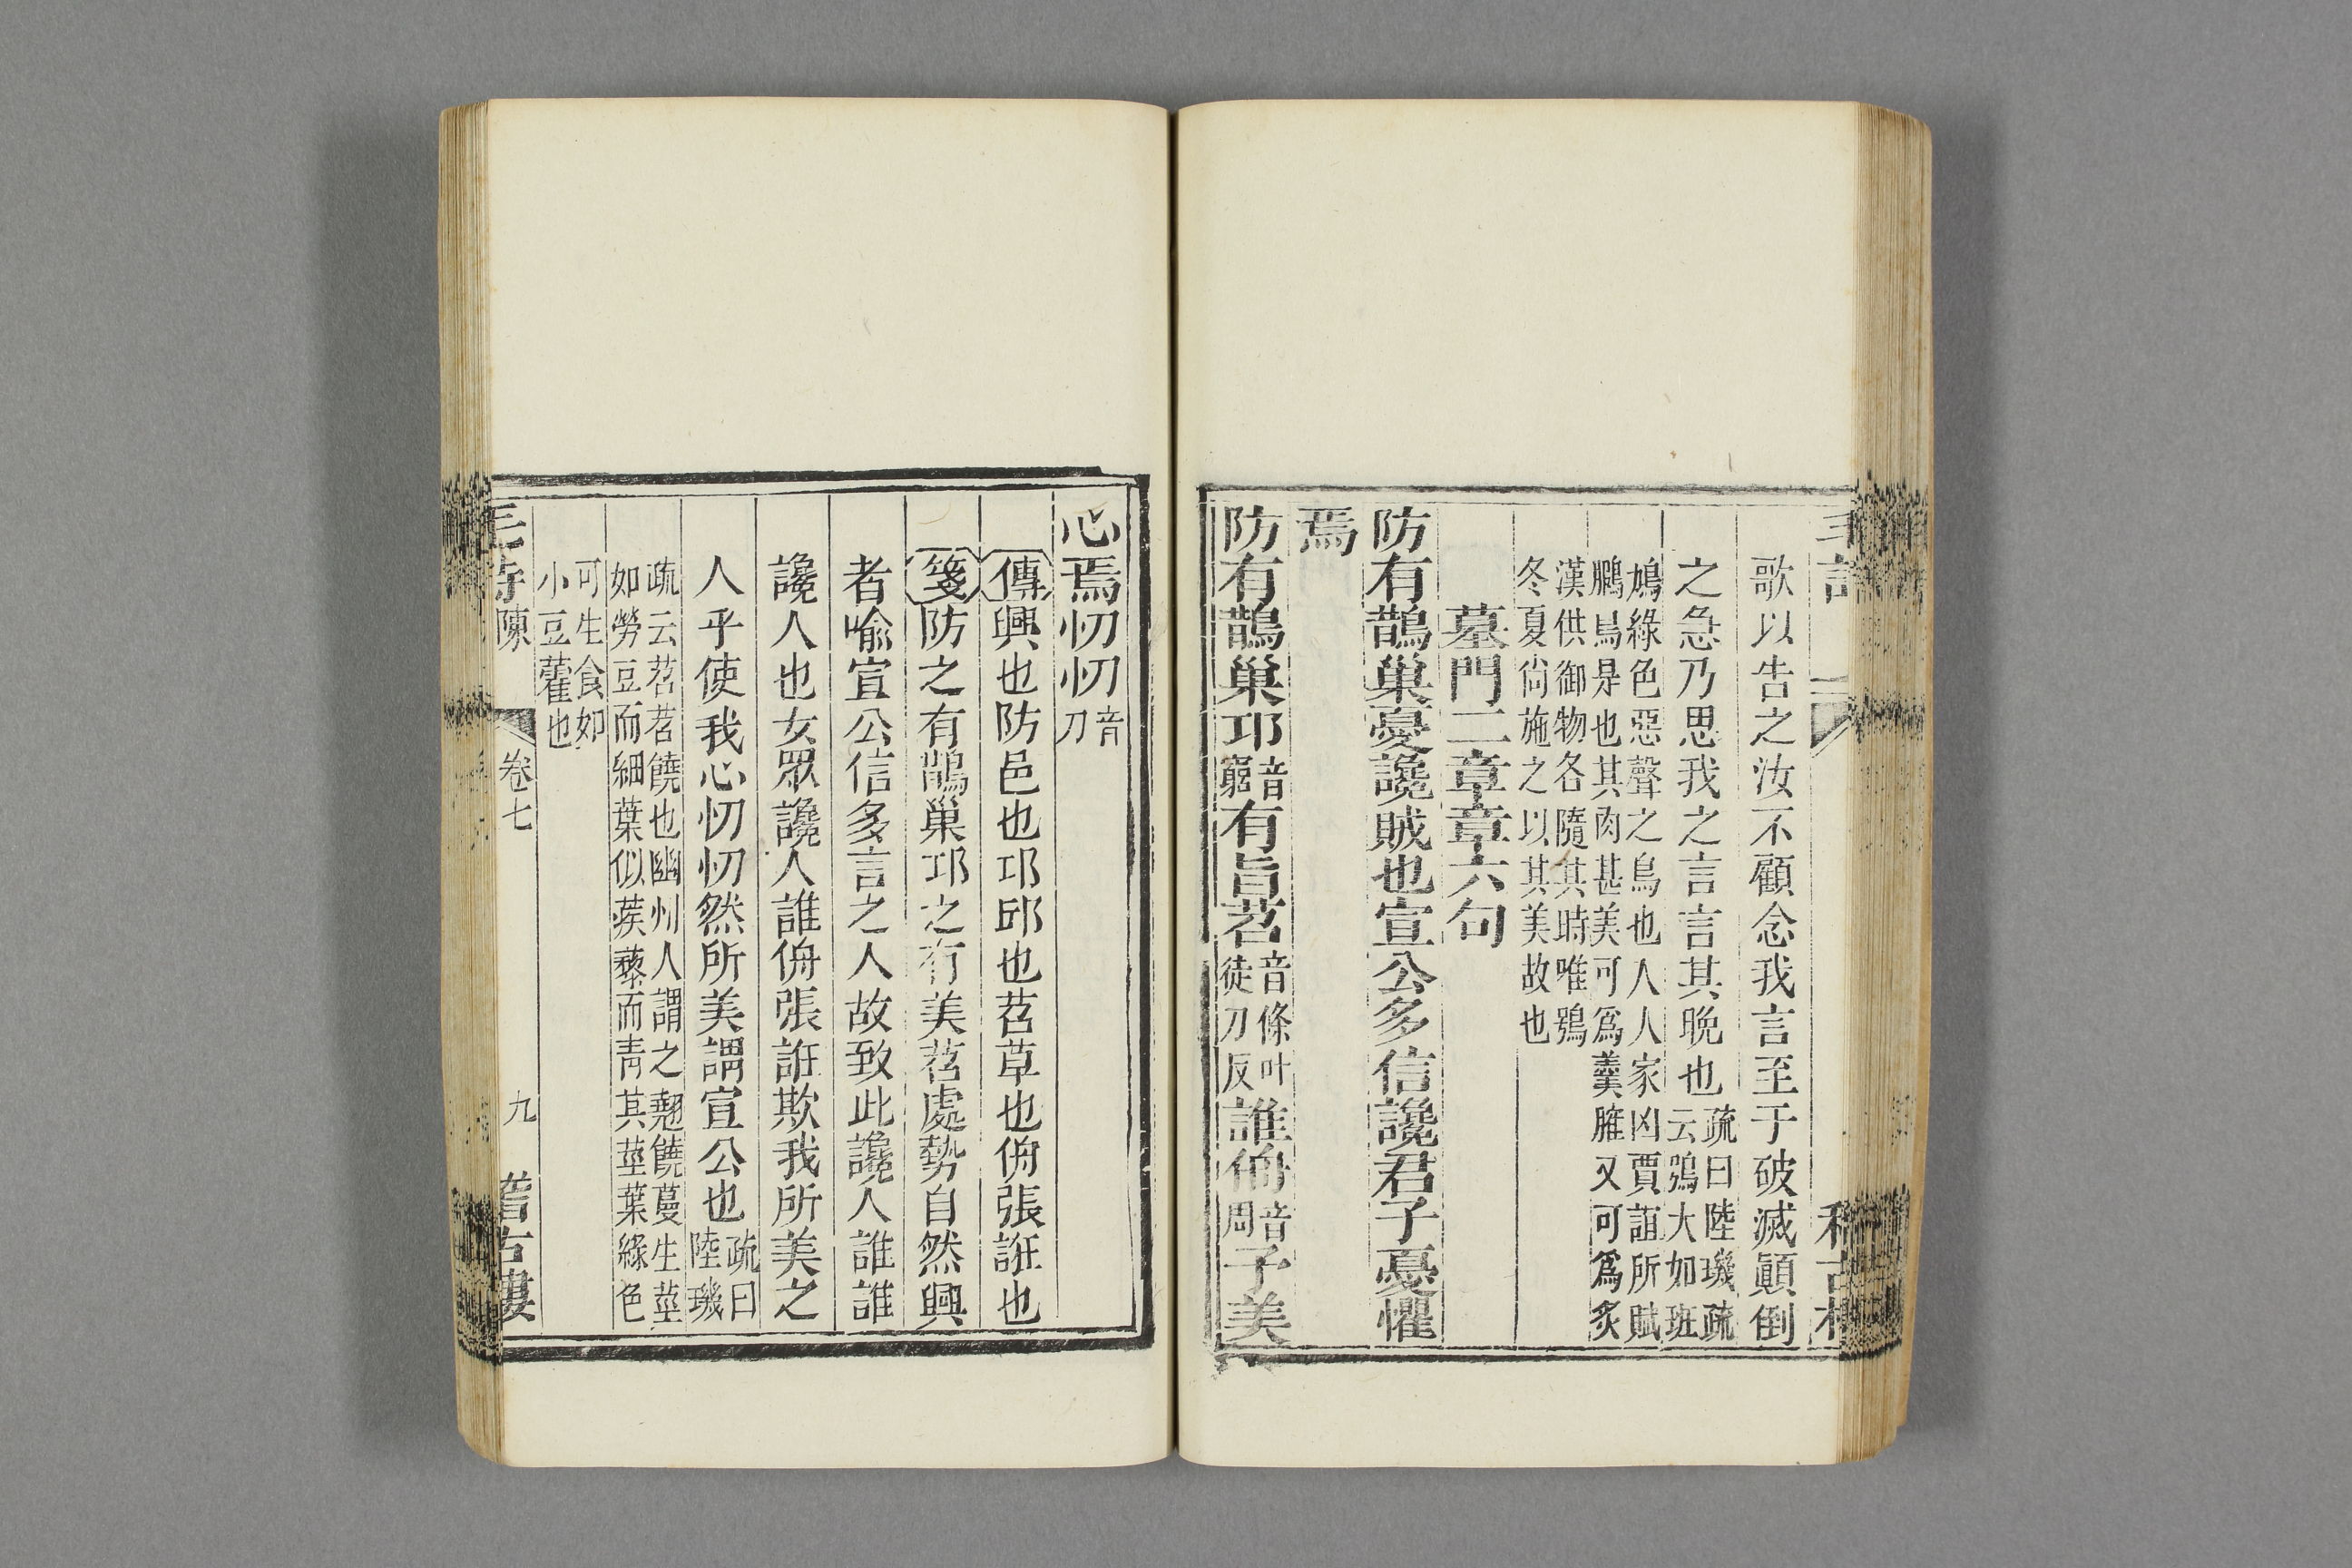 歌以告之汝不顧念我言至于破滅顚倒
之急乃思我之言言其晩也疏曰陸璣疏云鴞大如班
鳩綠色惡聲之鳥也人人家凶賈誼所賦
鵩鳥是也其肉甚美可爲羹臛又可爲炙
漢供御物各隨其時唯鴞
冬夏尙施之以其美故也
墓門二章章六句
防有鵲巢憂讒賊也宣公多信讒君子憂懼
焉
防有鵲巢邛音窮有旨苕音條叶徒刀反誰侜音周子美
心焉忉忉音刀
傳興也防邑也邛邱也苕草也侜張誑也
箋防之有鵲巢邛之有美苕處勢自然興
者喻宣公信多言之人故致此讒人誰誰
讒人也女眾讒人誰侜張誑欺我所美之
人乎使我心忉忉然所美謂宣公也疏曰陸璣
疏云苕苕饒也幽州人謂之翹饒蔓生莖
如勞豆而細葉似蒺藜而靑其莖葉綠色
可生食如
小豆藿也
毛詩陳 卷七 九 稽古樓